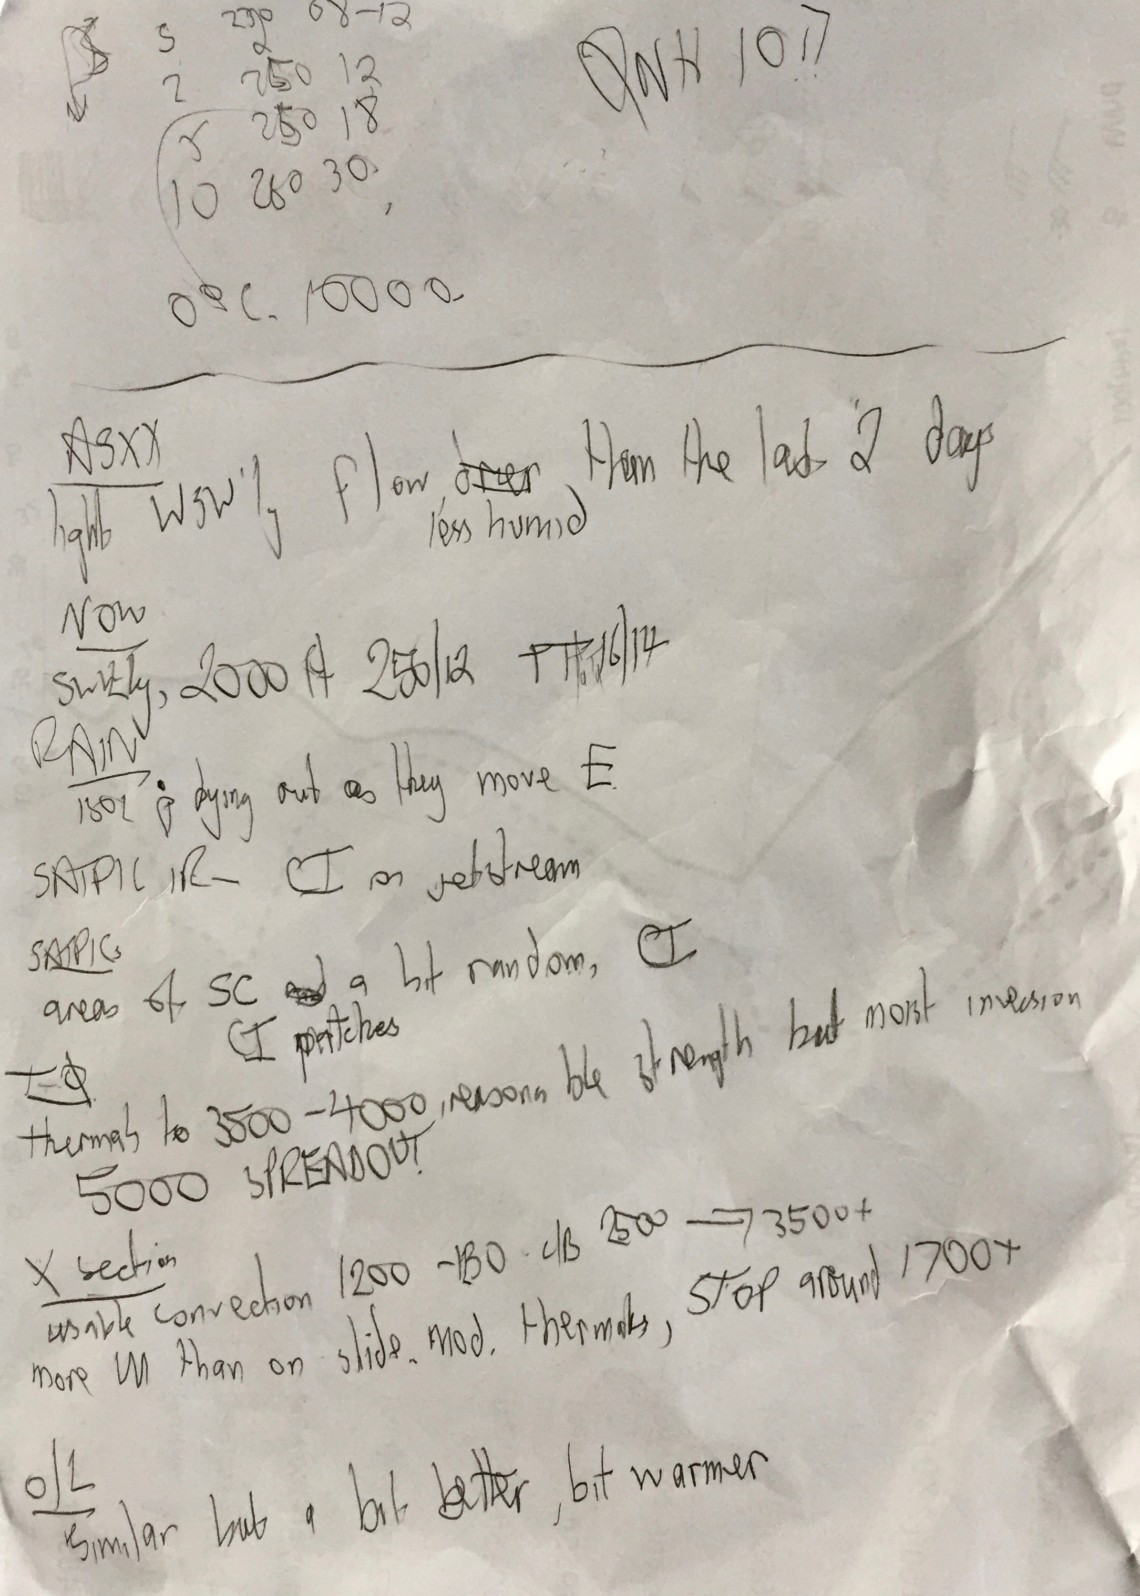 S 230 08-12
2 250 12
QNH 1017
5 250 18
10 260 30
0°C. 10000
ASXX
light WSW'ly flow, than the last 2 days
less humid
NOW
SW'ly, 2000 ft 250/12 TT 16/14
RAIN
dying out as they move E
SATPIC IR- CI on jetstream
SATPIC
areas of SC a bit random, CI
CI patches
T-Φ
thermals to 3500-4000, reasonable strength but moist inversion
5000 SPREADOUT!
X section
usable convection 1200 c/B 2500 ⟹ 3500+
more than on slide. mod. thermals, STOP around 1700+
O/L
similar but a bit better, bit warmer